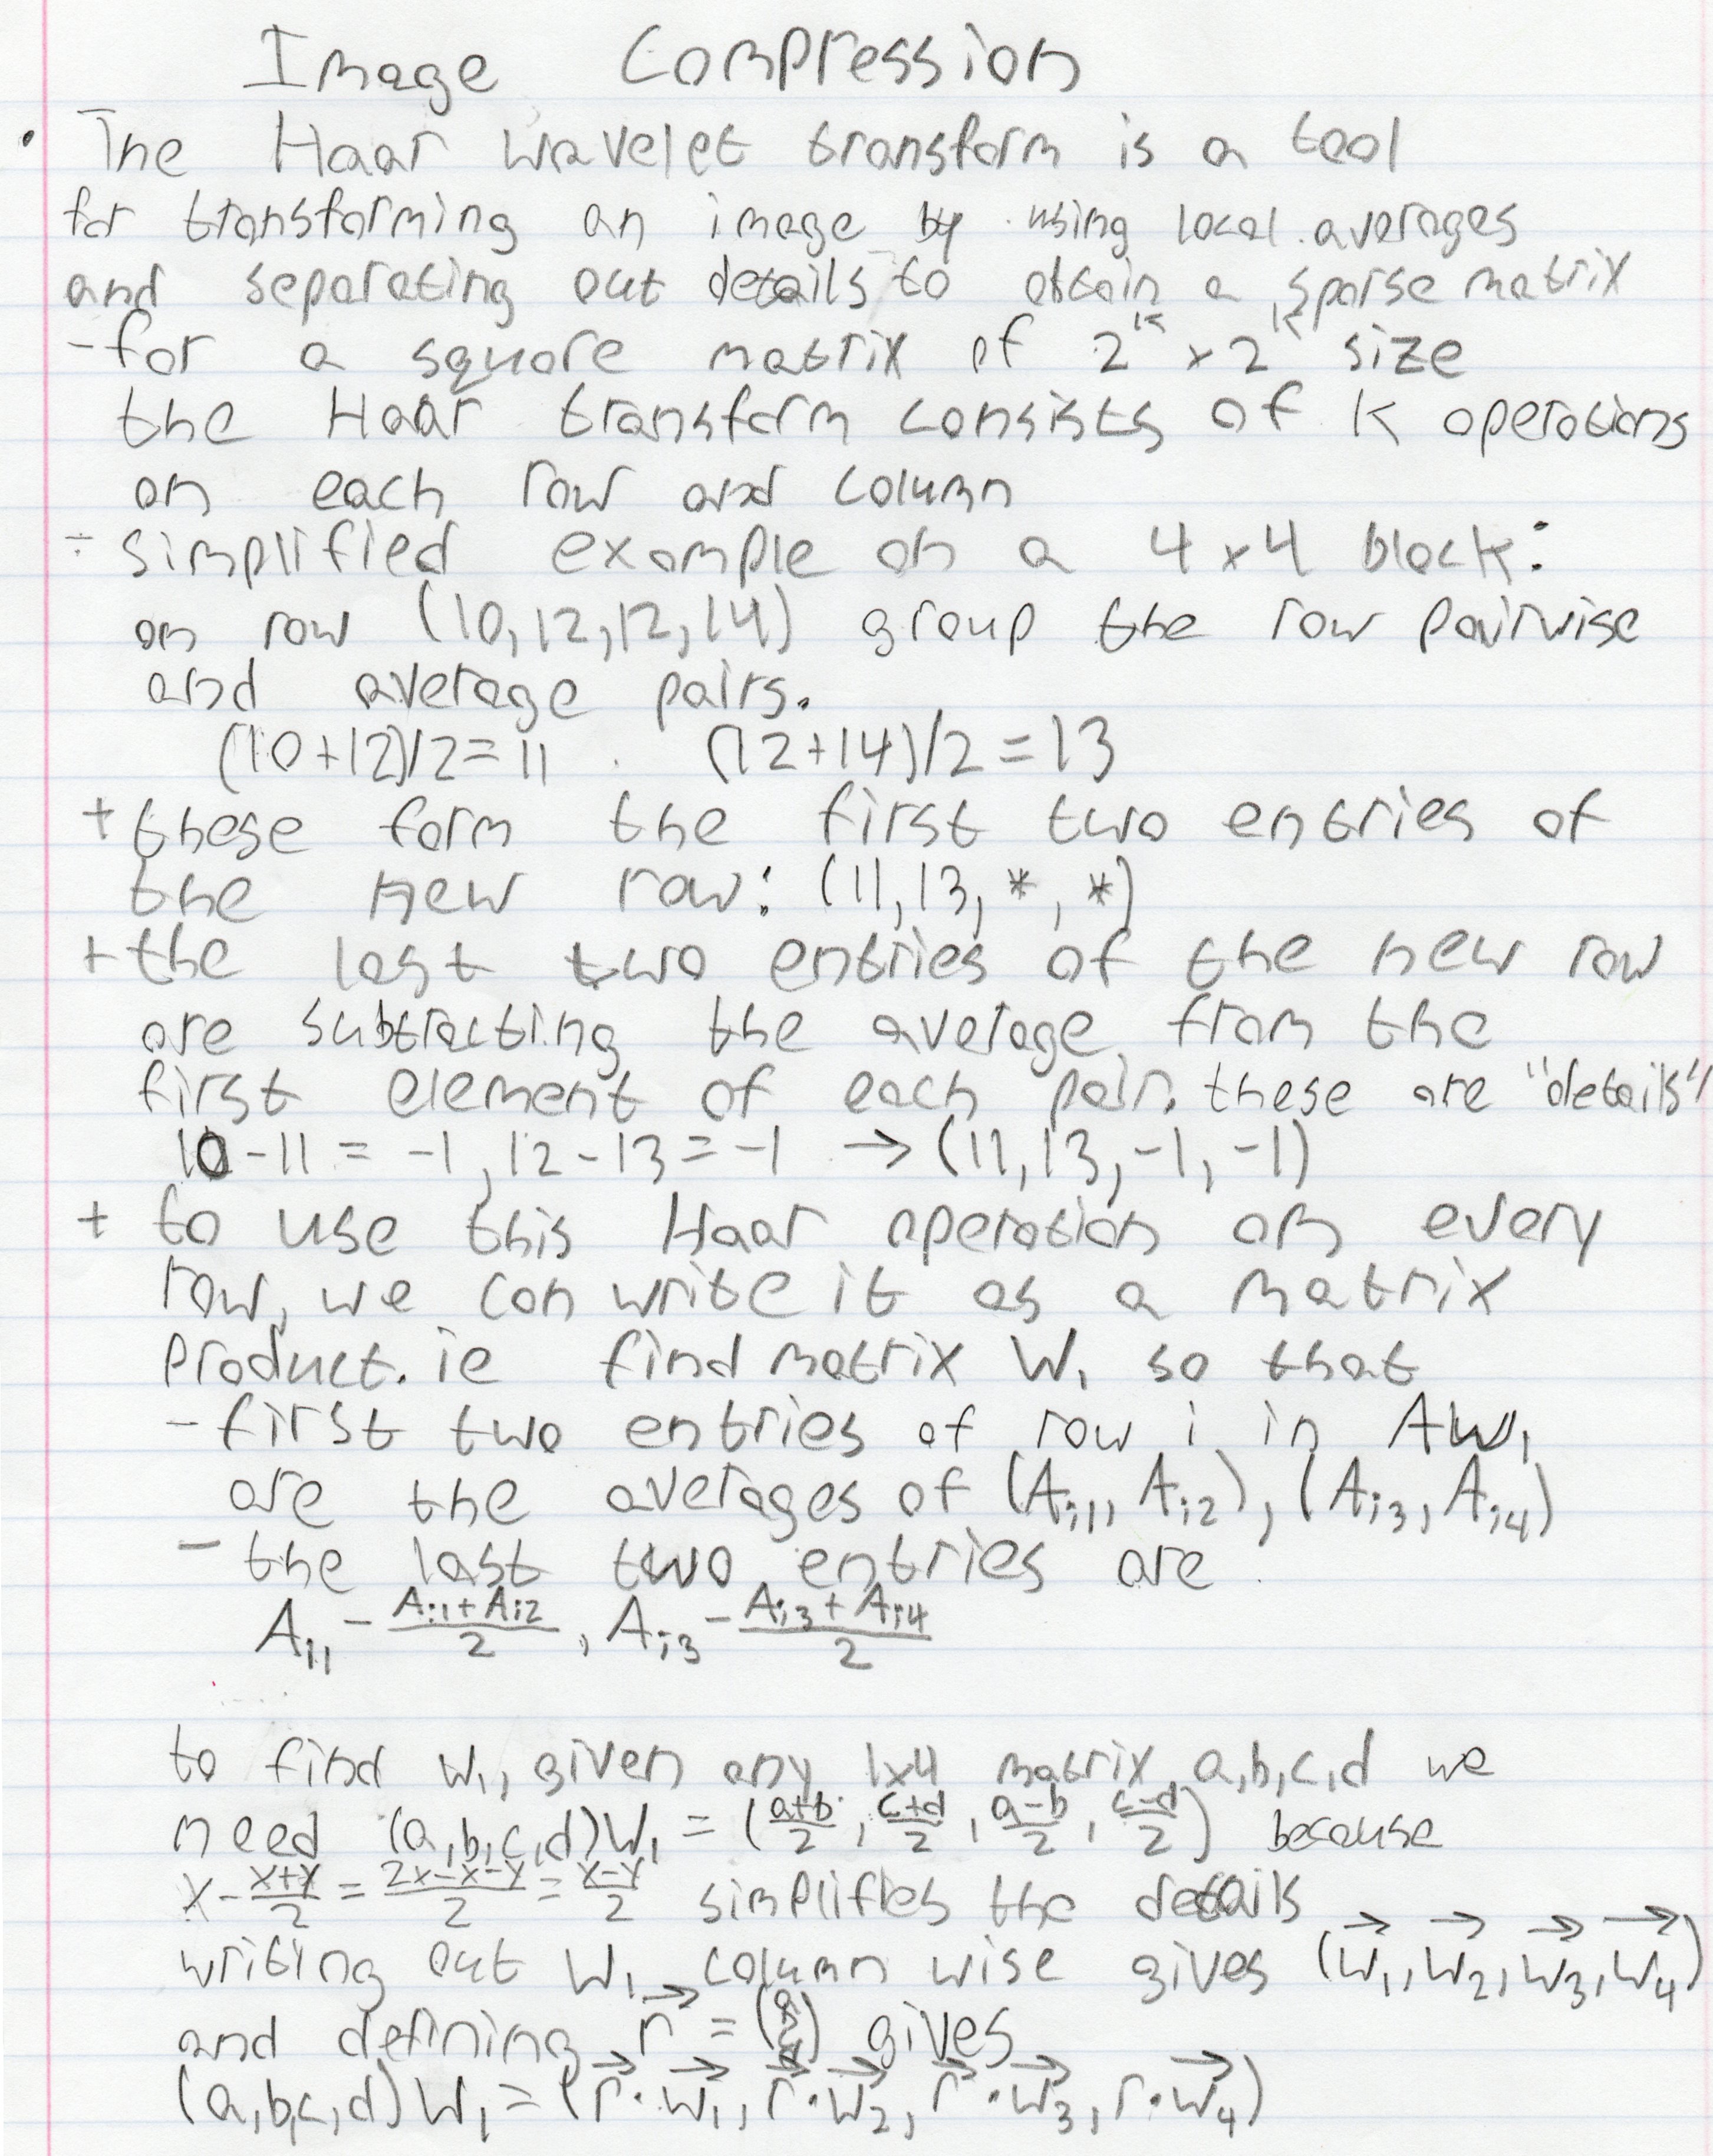 Image Compression
• The Haar wavelet transform is a tool
for transforming an image by using local averages
and separating out details to obtain a sparse matrix
- for a square matrix of 2^k × 2^k size
the Haar transform consists of k operations
on each row and column
÷ simplified example on a 4×4 block:
on row (10,12,12,14) group the row pairwise
and average pairs.
(10+12)/2=11 (12+14)/2=13
+ these form the first two entries of
the new row: (11,13,*,*)
+ the last two entries of the new row
are subtracting the average from the
first element of each pair. these are "details"
10-11 = -1, 12-13 = -1 → (11,13,-1,-1)
+ to use this Haar operation on every
row, we can write it as a matrix
product. ie find matrix W₁ so that
- first two entries of row i in AW₁
are the averages of (Aᵢ₁, Aᵢ₂), (Aᵢ₃, Aᵢ₄)
- the last two entries are
A₁₁ - (Aᵢ₁+Aᵢ₂)/2, Aᵢ₃ - (Aᵢ₃+Aᵢ₄)/2
to find W₁, given any 1x4 matrix a,b,c,d we
need (a,b,c,d)W₁ = ((a+b)/2, (c+d)/2, (a-b)/2, (c-d)/2) because
x - (x+y)/2 = (2x-x-y)/2 = (x-y)/2 simplifies the details
writing out W₁ column wise gives (w⃗₁, w⃗₂, w⃗₃, w⃗₄)
and defining r⃗ = (a b c d) gives
(a,b,c,d)W₁ = (r⃗·w⃗₁, r⃗·w⃗₂, r⃗·w⃗₃, r·w⃗₄)